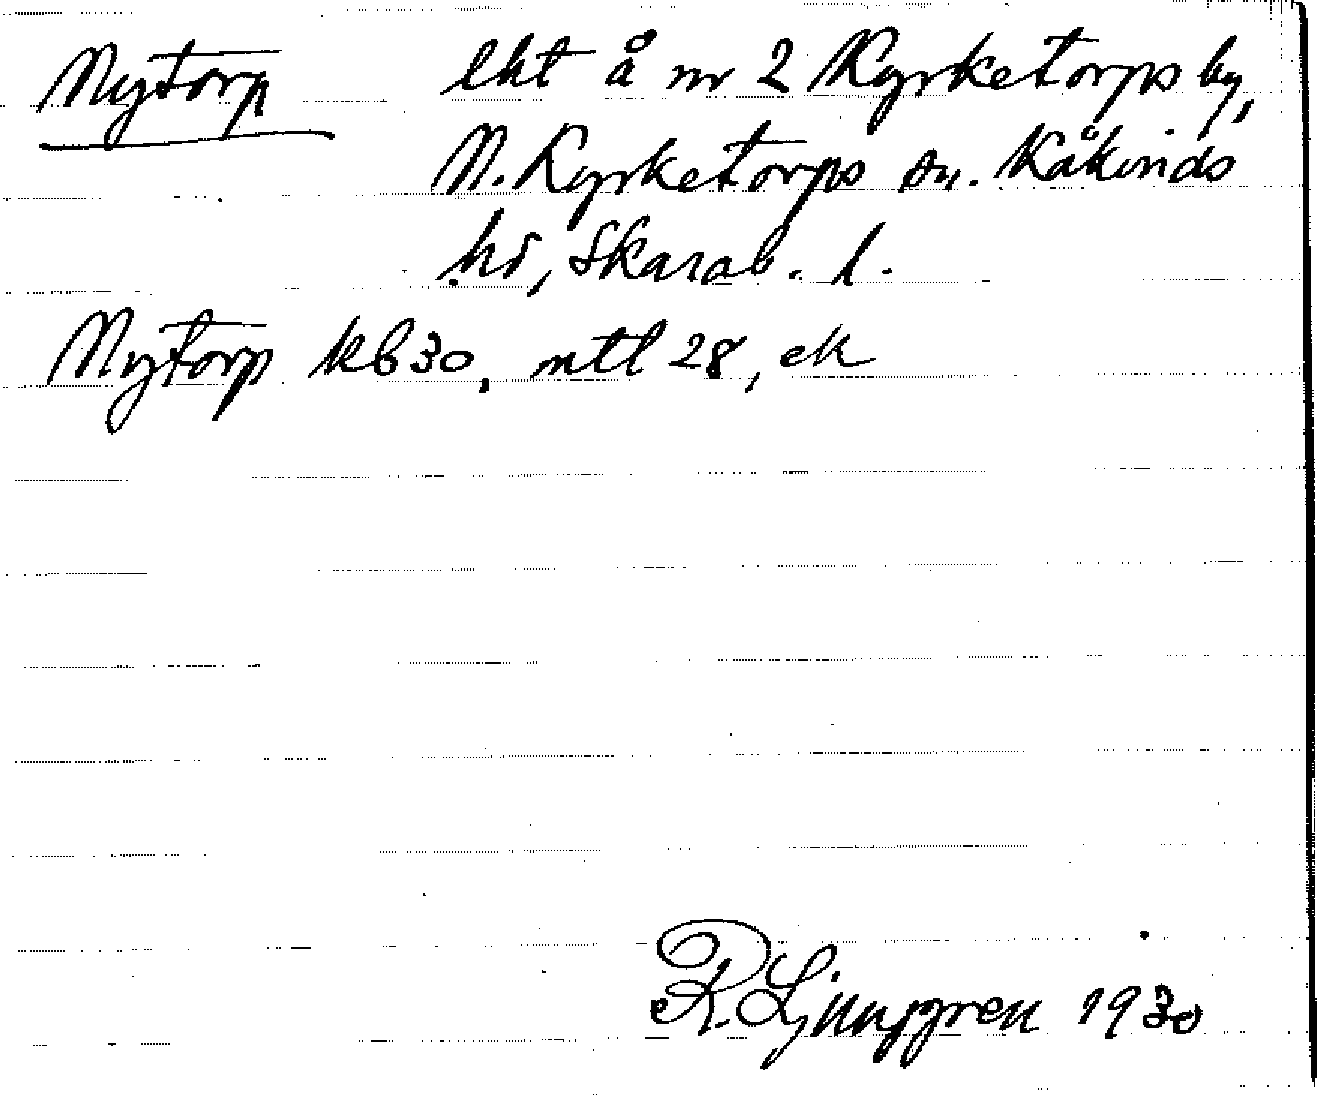 Nytorp lht å nr 2 Kyrketorps by,
N. Kyrketorps sn. Kåkinds
hd, Skarab. l.
Nytorp kb 30, mtl 28, ek
R. Ljunggren 1930